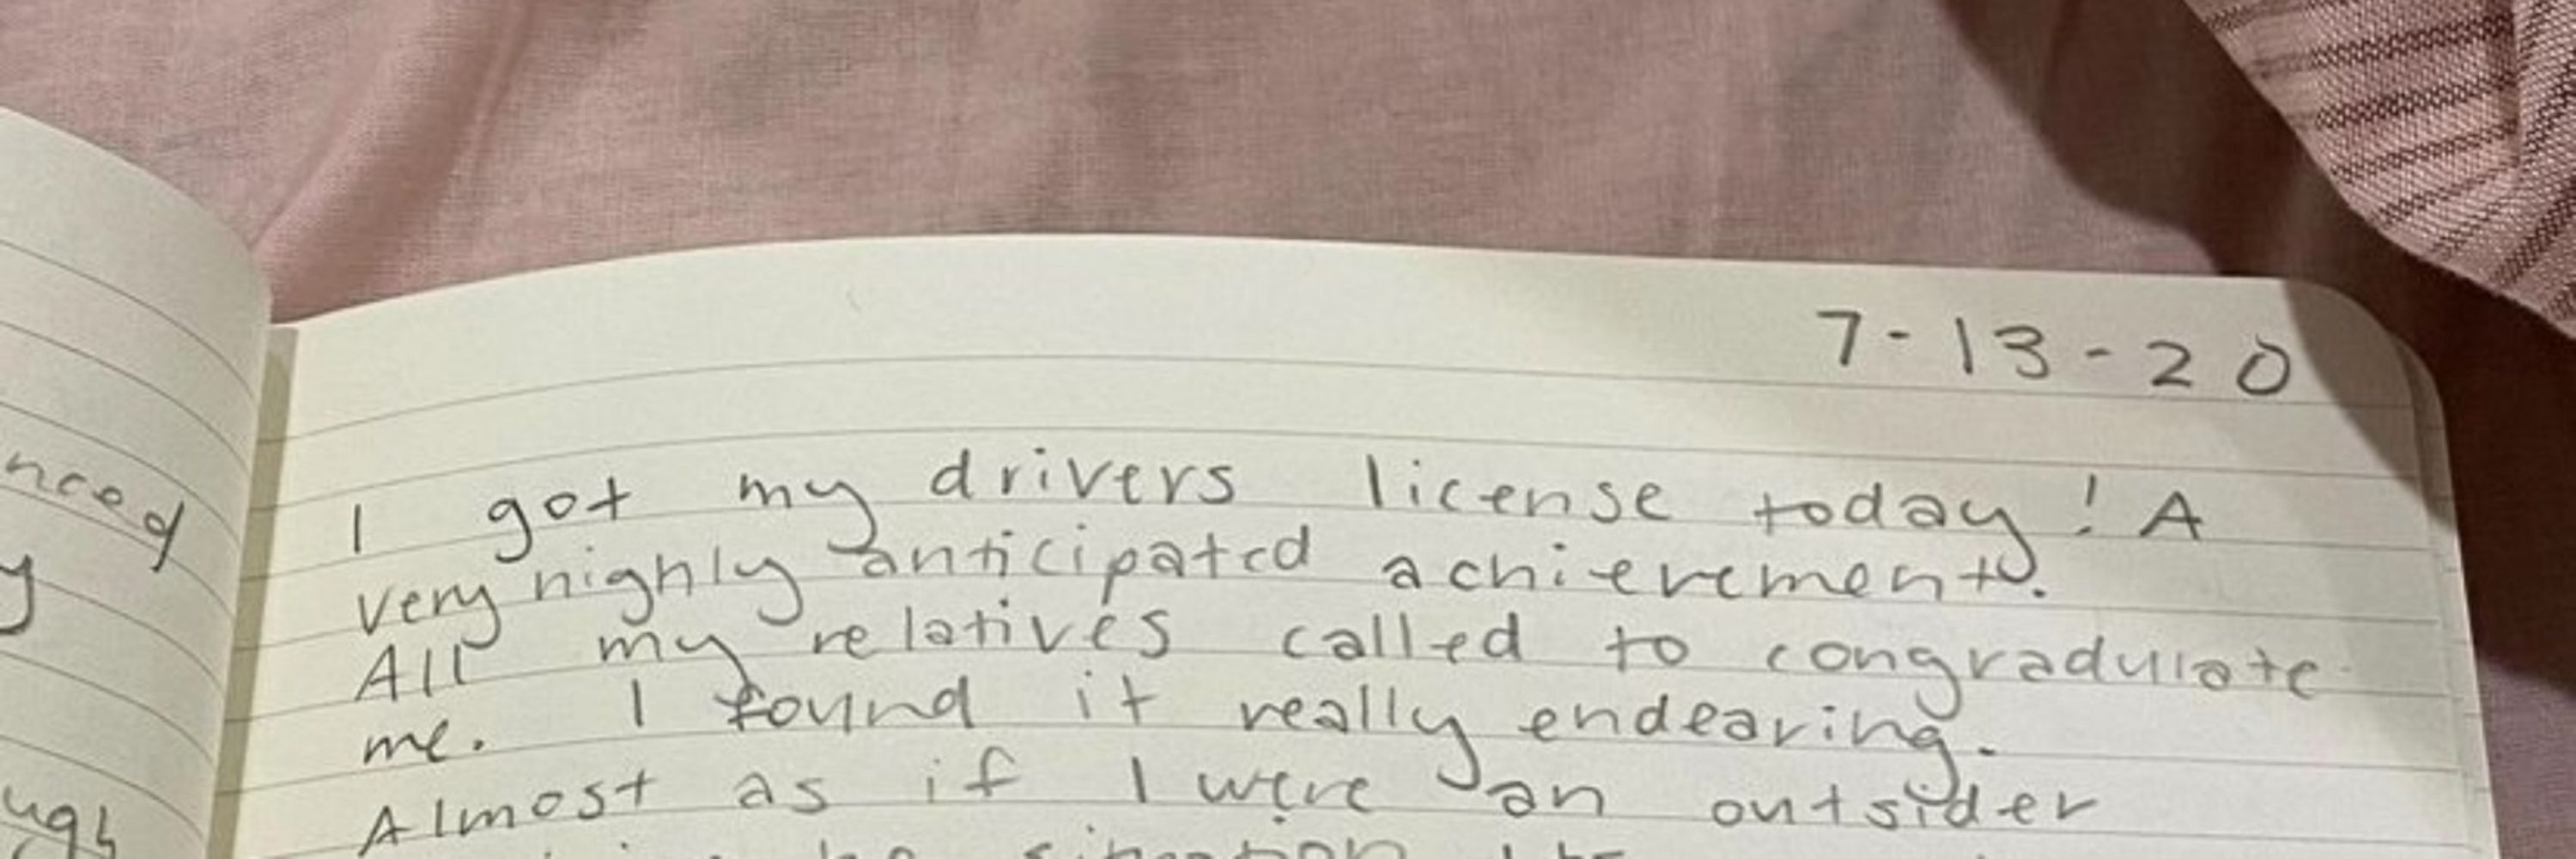 7-13-20
I got my drivers license today! A
very highly anticipated achievement.
All my relatives called to congradulate
me. I found it really endearing.
Almost as if I were an outsider
situation